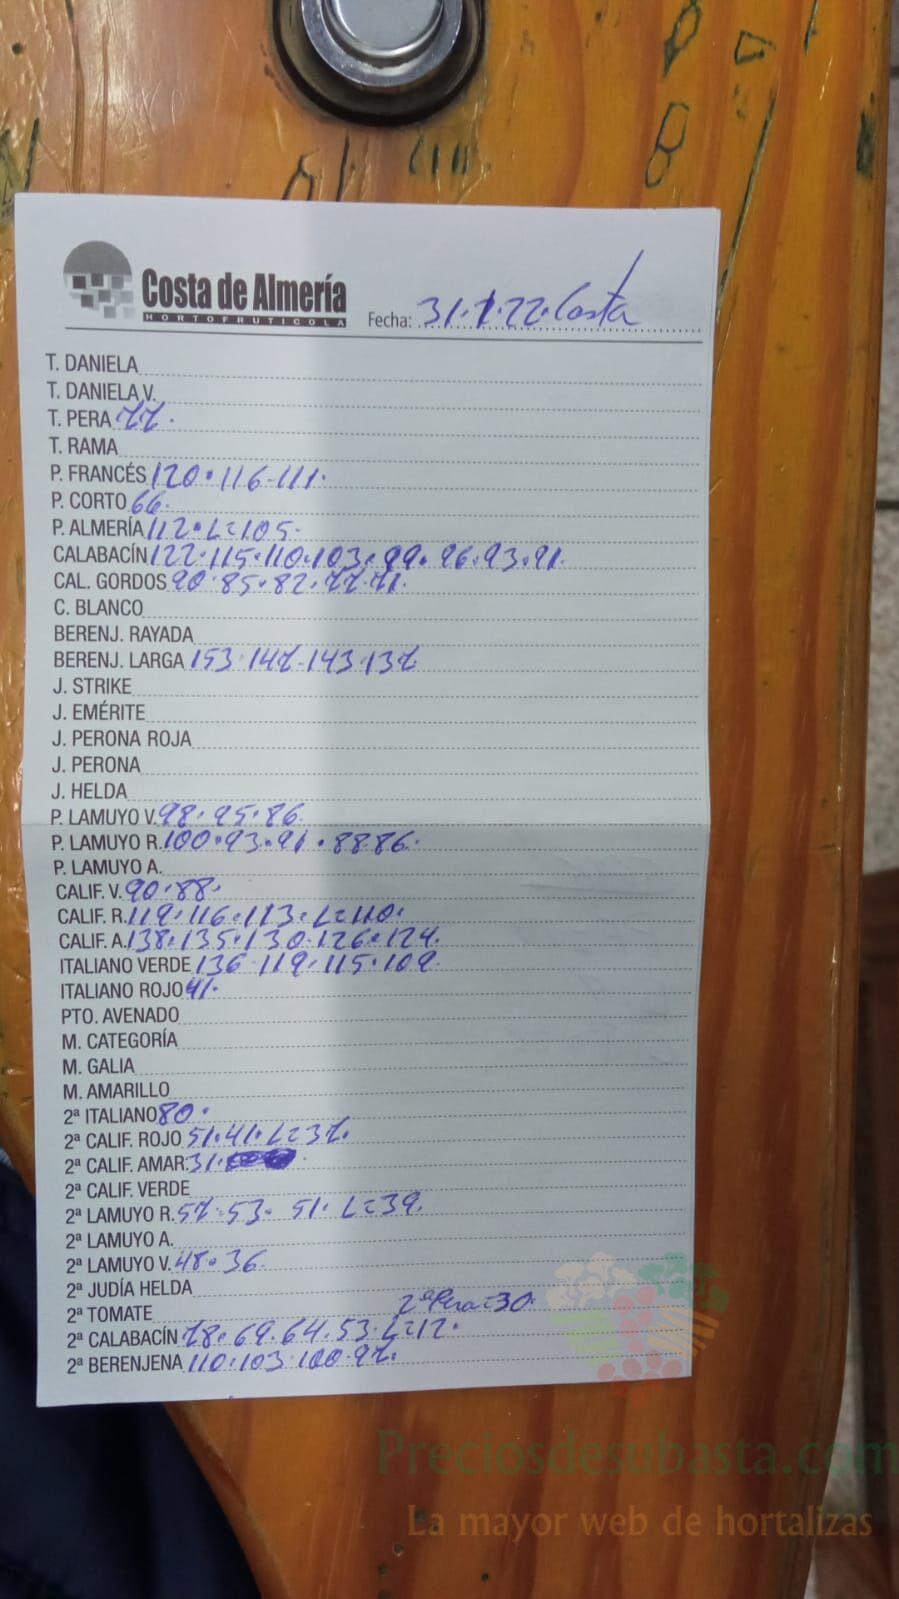 Costa de Almería
HORTOFRUTICOLA
Fecha: 31.1.22. Costa
T. DANIELA
T. DANIELA V.
T. PERA 77.
T. RAMA
P. FRANCÉS 120.116-111.
P. CORTO 66.
P. ALMERÍA 112.L=105.
CALABACÍN 122.115.110.103.99.96.93.91.
CAL. GORDOS 90.85.82.77.71.
C. BLANCO
BERENJ. RAYADA
BERENJ. LARGA 153.147.143.137
J. STRIKE
J. EMÉRITE
J. PERONA ROJA
J. PERONA
J. HELDA
P. LAMUYO V. 98.95.86.
P. LAMUYO R. 100.93.91.88 86.
P. LAMUYO A.
CALIF. V. 90.88.
CALIF. R. 119.116.113.L=110.
CALIF. A. 138.135.130.126.124.
ITALIANO VERDE 136-119.115.109.
ITALIANO ROJO 41.
PTO. AVENADO
M. CATEGORÍA
M. GALIA
M. AMARILLO
2ª ITALIANO 80.
2ª CALIF. ROJO 51.41.L=37.
2ª CALIF. AMAR. 31.
2ª CALIF. VERDE
2ª LAMUYO R. 57.53. 51. L=39.
2ª LAMUYO A.
2ª LAMUYO V. 48.36.
2ª JUDÍA HELDA
2ª TOMATE 2ª Pera=30.
2ª CALABACÍN 78.69.64.53.L=12.
2ª BERENJENA 110.103.100.97.
Preciosdesubasta.com
La mayor web de hortalizas